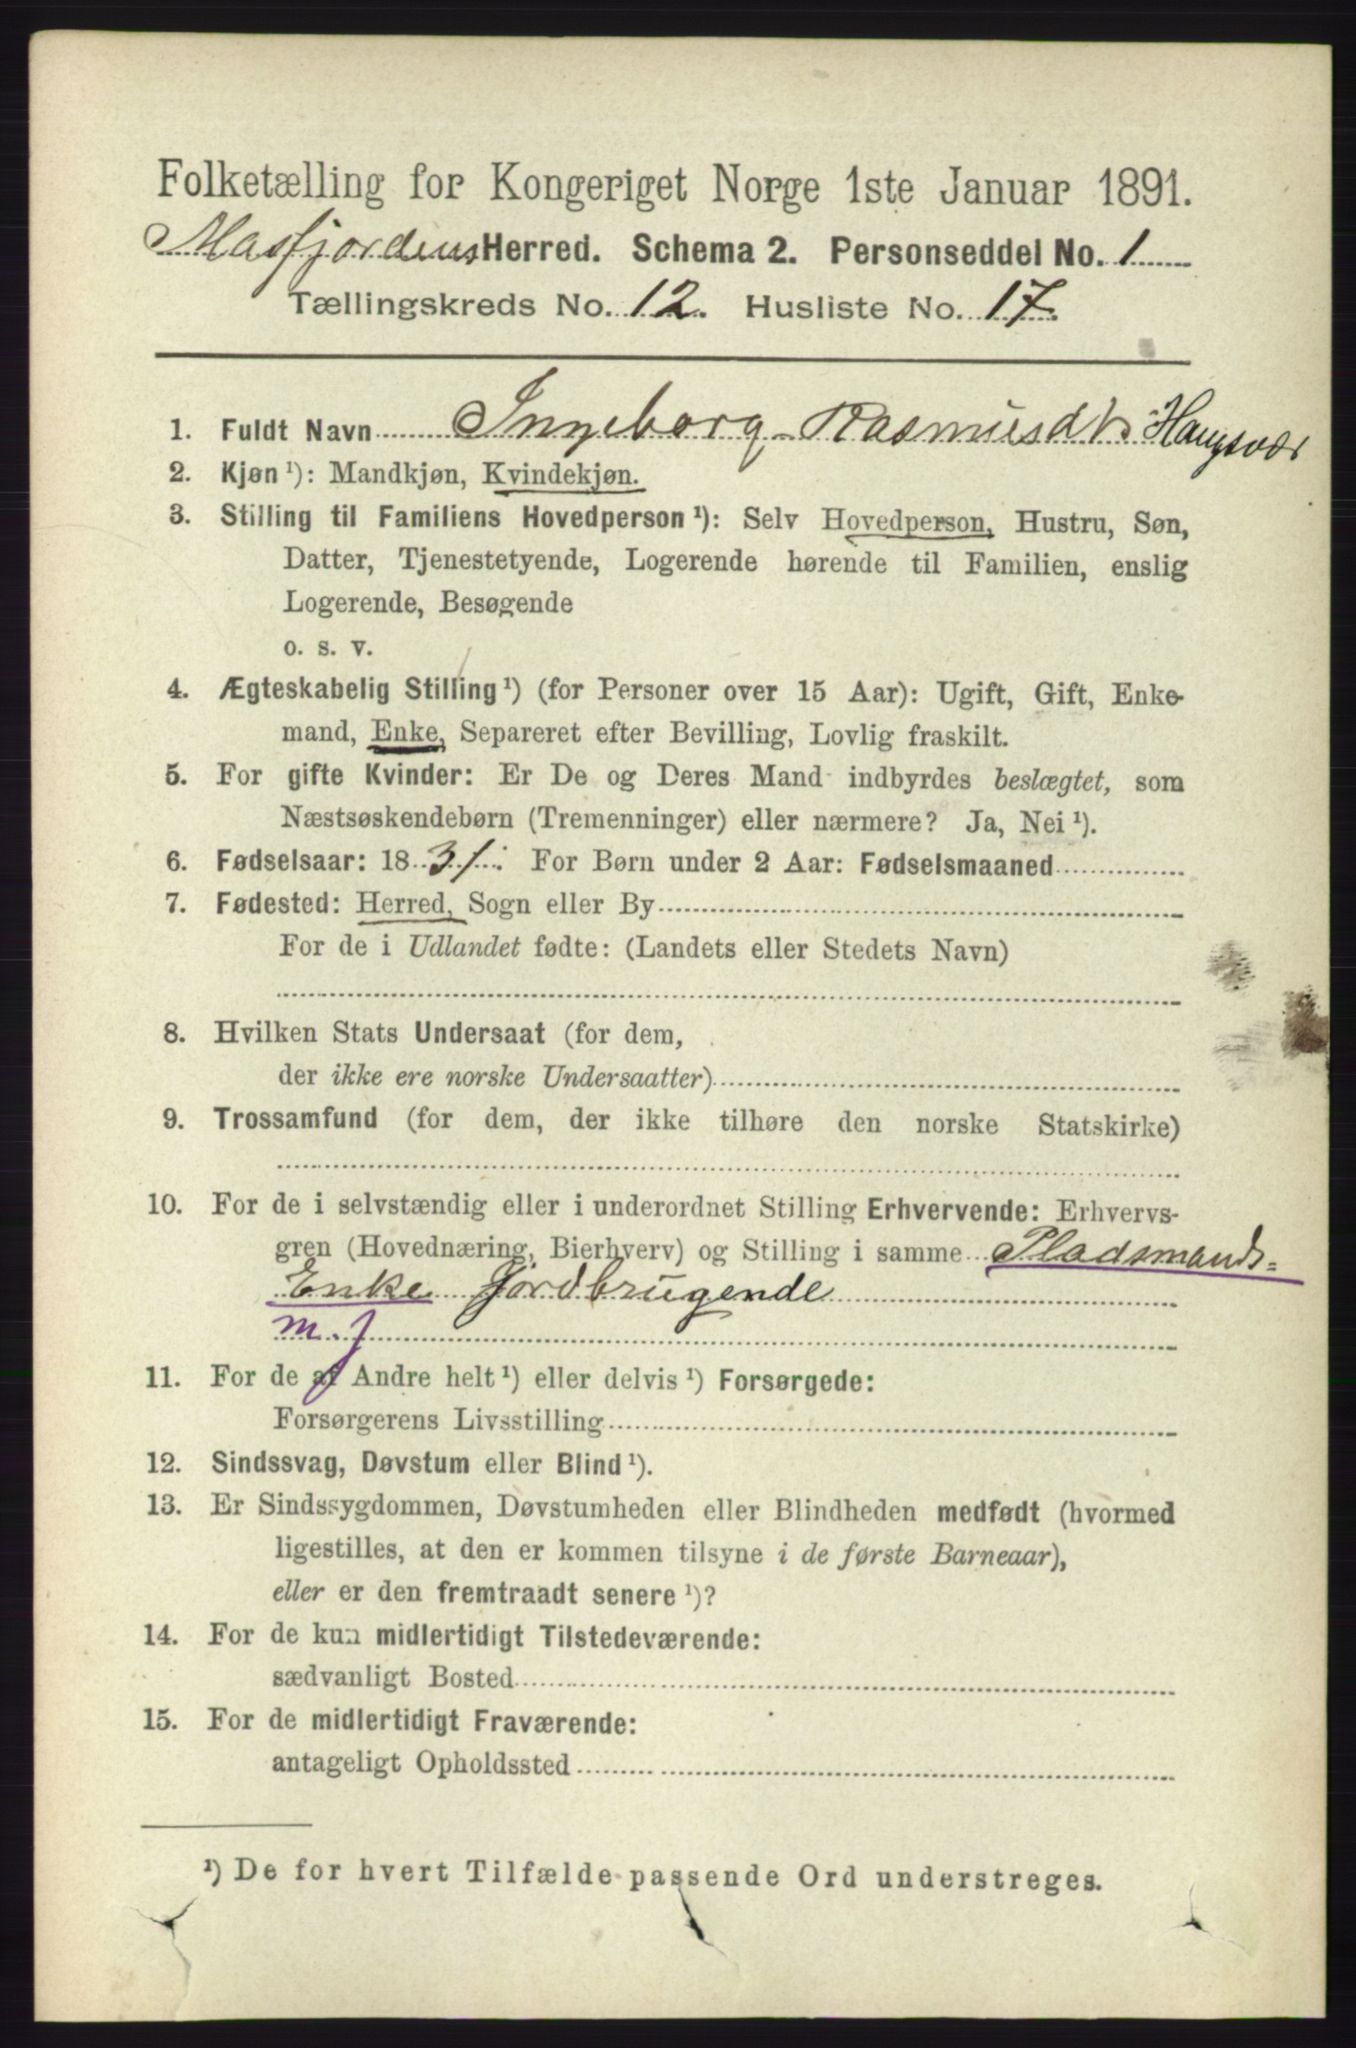 Folketælling for Kongeriget Norge 1ste Januar 1891.
Masfjordens Herred. Schema 2. Personseddel No. 1
Tællingskreds No. 12. Husliste No. 17.
1. Fuldt Navn Ingeborg Rasmusdtr Haugsvær
2. Kjøn ¹): Mandkjøn, Kvindekjøn.
3. Stilling til Familiens Hovedperson ¹): Selv Hovedperson, Hustru, Søn,
Datter, Tjenestetyende, Logerende hørende til Familien, enslig
Logerende, Besøgende
o. s. v.
4. Ægteskabelig Stilling ¹) (for Personer over 15 Aar): Ugift, Gift, Enke-
mand, Enke, Separeret efter Bevilling, Lovlig fraskilt.
5. For gifte Kvinder: Er De og Deres Mand indbyrdes beslægtet, som
Næstsøskendebørn (Tremenninger) eller nærmere? Ja, Nei ¹).
6. Fødselsaar: 1831. For Børn under 2 Aar: Fødselsmaaned
7. Fødested: Herred, Sogn eller By
For de i Udlandet fødte: (Landets eller Stedets Navn)
8. Hvilken Stats Undersaat (for dem,
der ikke ere norske Undersaatter)
9. Trossamfund (for dem, der ikke tilhøre den norske Statskirke)
10. For de i selvstændig eller i underordnet Stilling Erhvervende: Erhvervs-
gren (Hovednæring, Bierhverv) og Stilling i samme Pladsmands=
Enke Jordbrugende
m. j
11. For de af Andre helt ¹) eller delvis ¹) Forsørgede:
Forsørgerens Livsstilling
12. Sindssvag, Døvstum eller Blind ¹).
13. Er Sindssygdommen, Døvstumheden eller Blindheden medfødt (hvormed
ligestilles, at den er kommen tilsyne i de første Barneaar),
eller er den fremtraadt senere ¹)?
14. For de kun midlertidigt Tilstedeværende:
sædvanligt Bosted
15. For de midlertidigt Fraværende:
antageligt Opholdssted
¹) De for hvert Tilfælde passende Ord understreges.